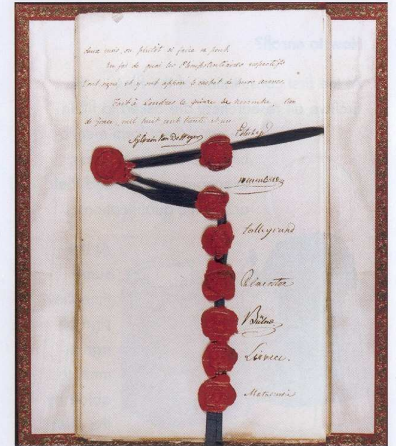 deux mois, ou plutôt si faire se peut.
En foi de quoi, les Plénipotentiaires respectifs
l'ont signé, et y ont apposé le cachet de leurs armes.
Fait à Londres le quinze de Novembre, l'an
de Grace, mil huit cent trente et un.
Sylvain Van de Weyer
Esterhazy
Wessenberg
Talleyrand
Palmerston
Bülow
Lieven.
Matuszewic